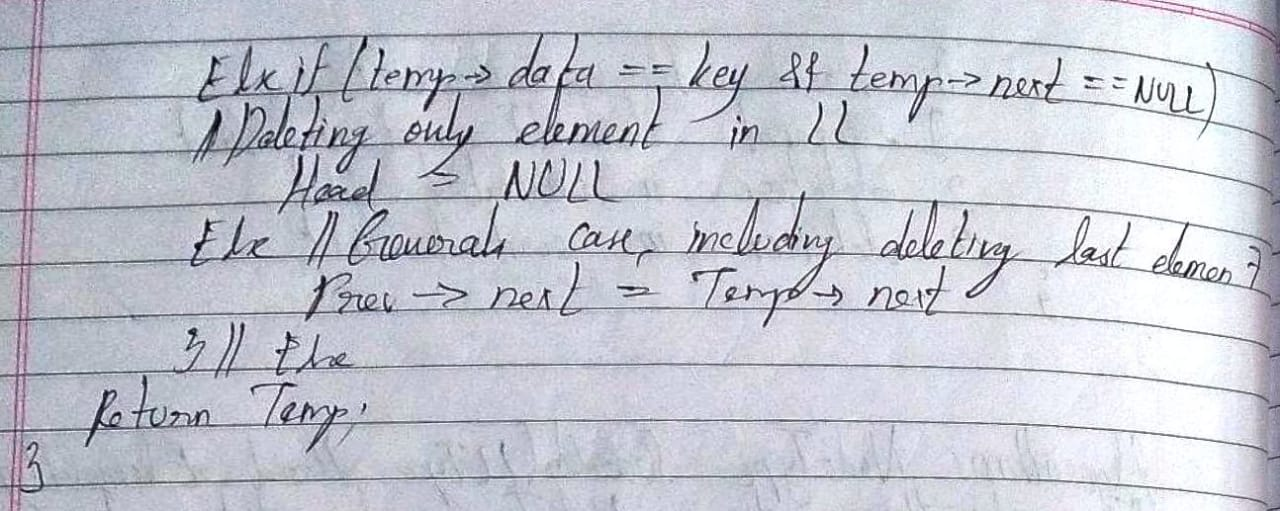 Else if (temp→ data == key && temp→ next == NULL)
// Deleting only element in LL
Head = NULL
Else // General case, including deleting last element
Prev → next = Temp → next
} // Else
Return Temp;
}